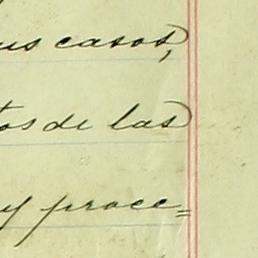 us casos,
tos de las
y proce=